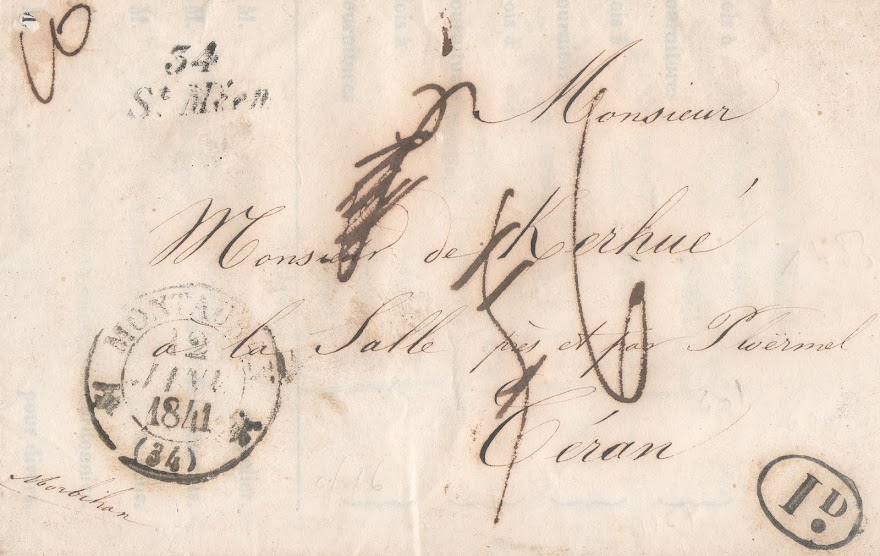 34
St Méen
Monsieur
Monsieur de Kerhué
à la Salle près et par Ploërmel
Téran
MONTAUBAN
12
JUIN
1841
(34)
Morbihan
1D